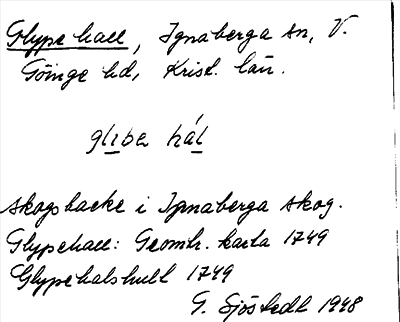 Glype hall, Ignaberga sn, V.
Göinge hd, Krist. län.
glıba hál
skogsbacke i Ignaberga skog.
Glypehall: Geomtr. karta 1749
Glypehalshult 1749
G. Sjöstedt 1948